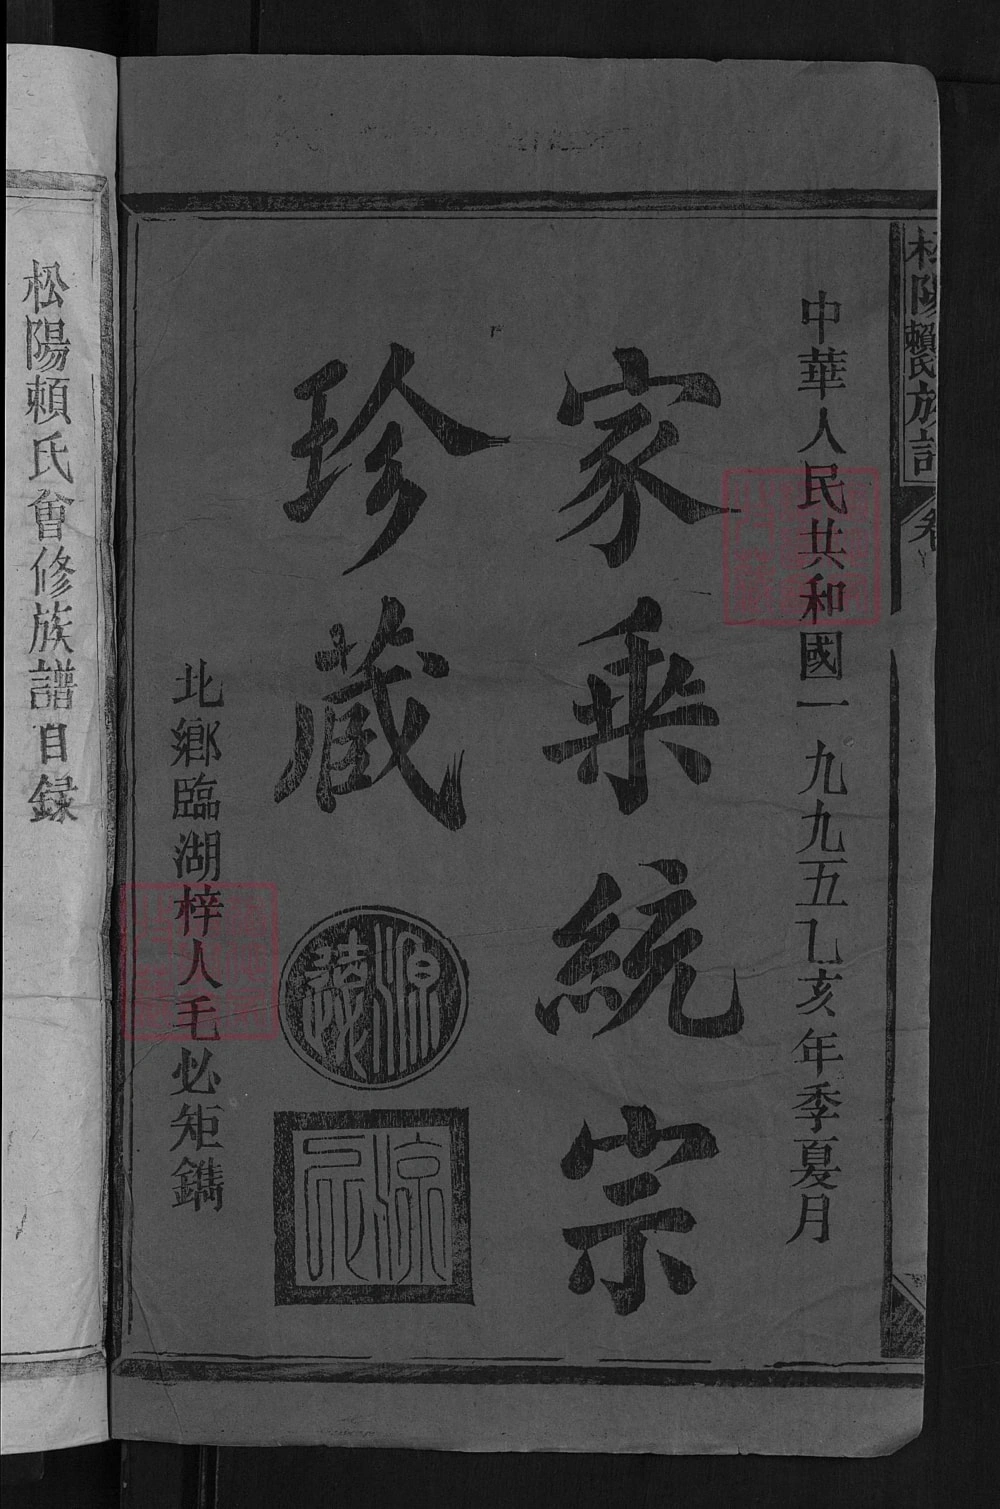 松陽賴氏族譜
卷
中華人民共和國一九九五乙亥年季夏月
家乘統宗
珍藏
源遠
流長
北鄉臨湖梓人毛必矩鐫
松陽賴氏會修族譜目録